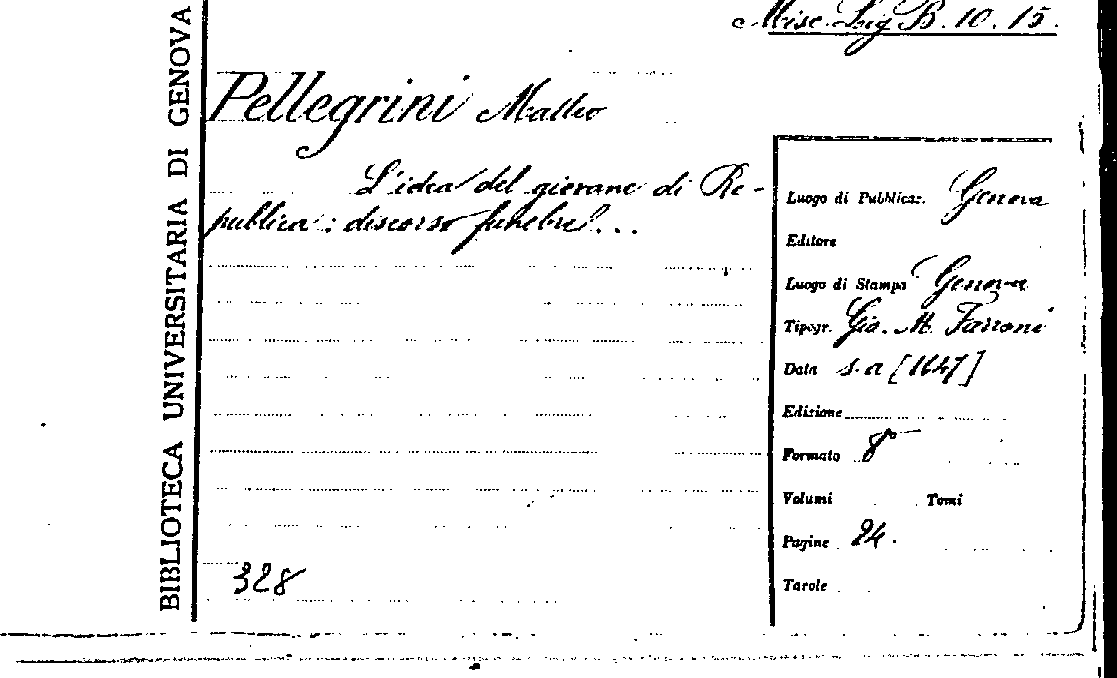 BIBLIOTECA UNIVERSITARIA DI GENOVA
Misc. Lig B. 10. 15.
Pellegrini Matteo
L'idea del giovane di Re-
publica: discorso funebre...
Luogo di Pubblicaz. Genova
Editore
Luogo di Stampa Genova
Tipogr. Gio. M. Farroni
Data s.a [1647]
Edizione
Formato 8°
Volumi Tomi
Pagine 24.
Tavole
328